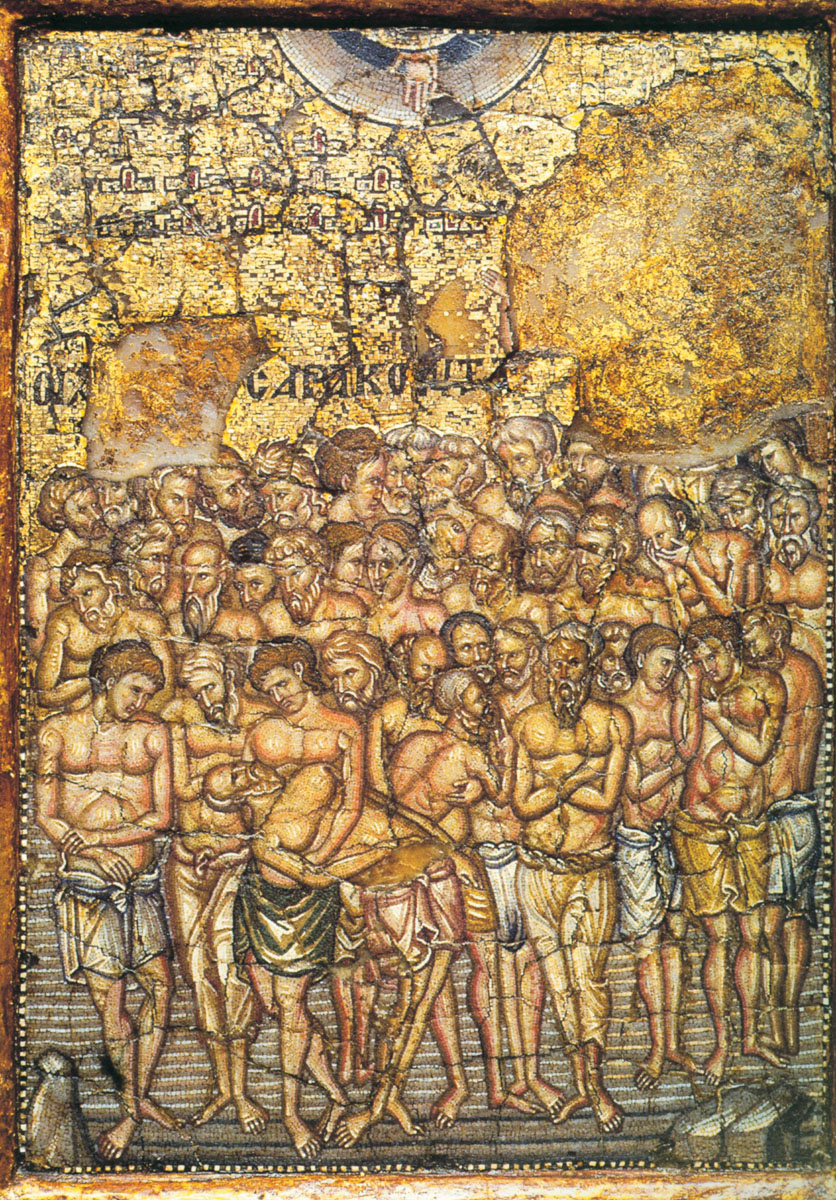 ΟΙ Α CΑΡΑΚΟΝΤΑ